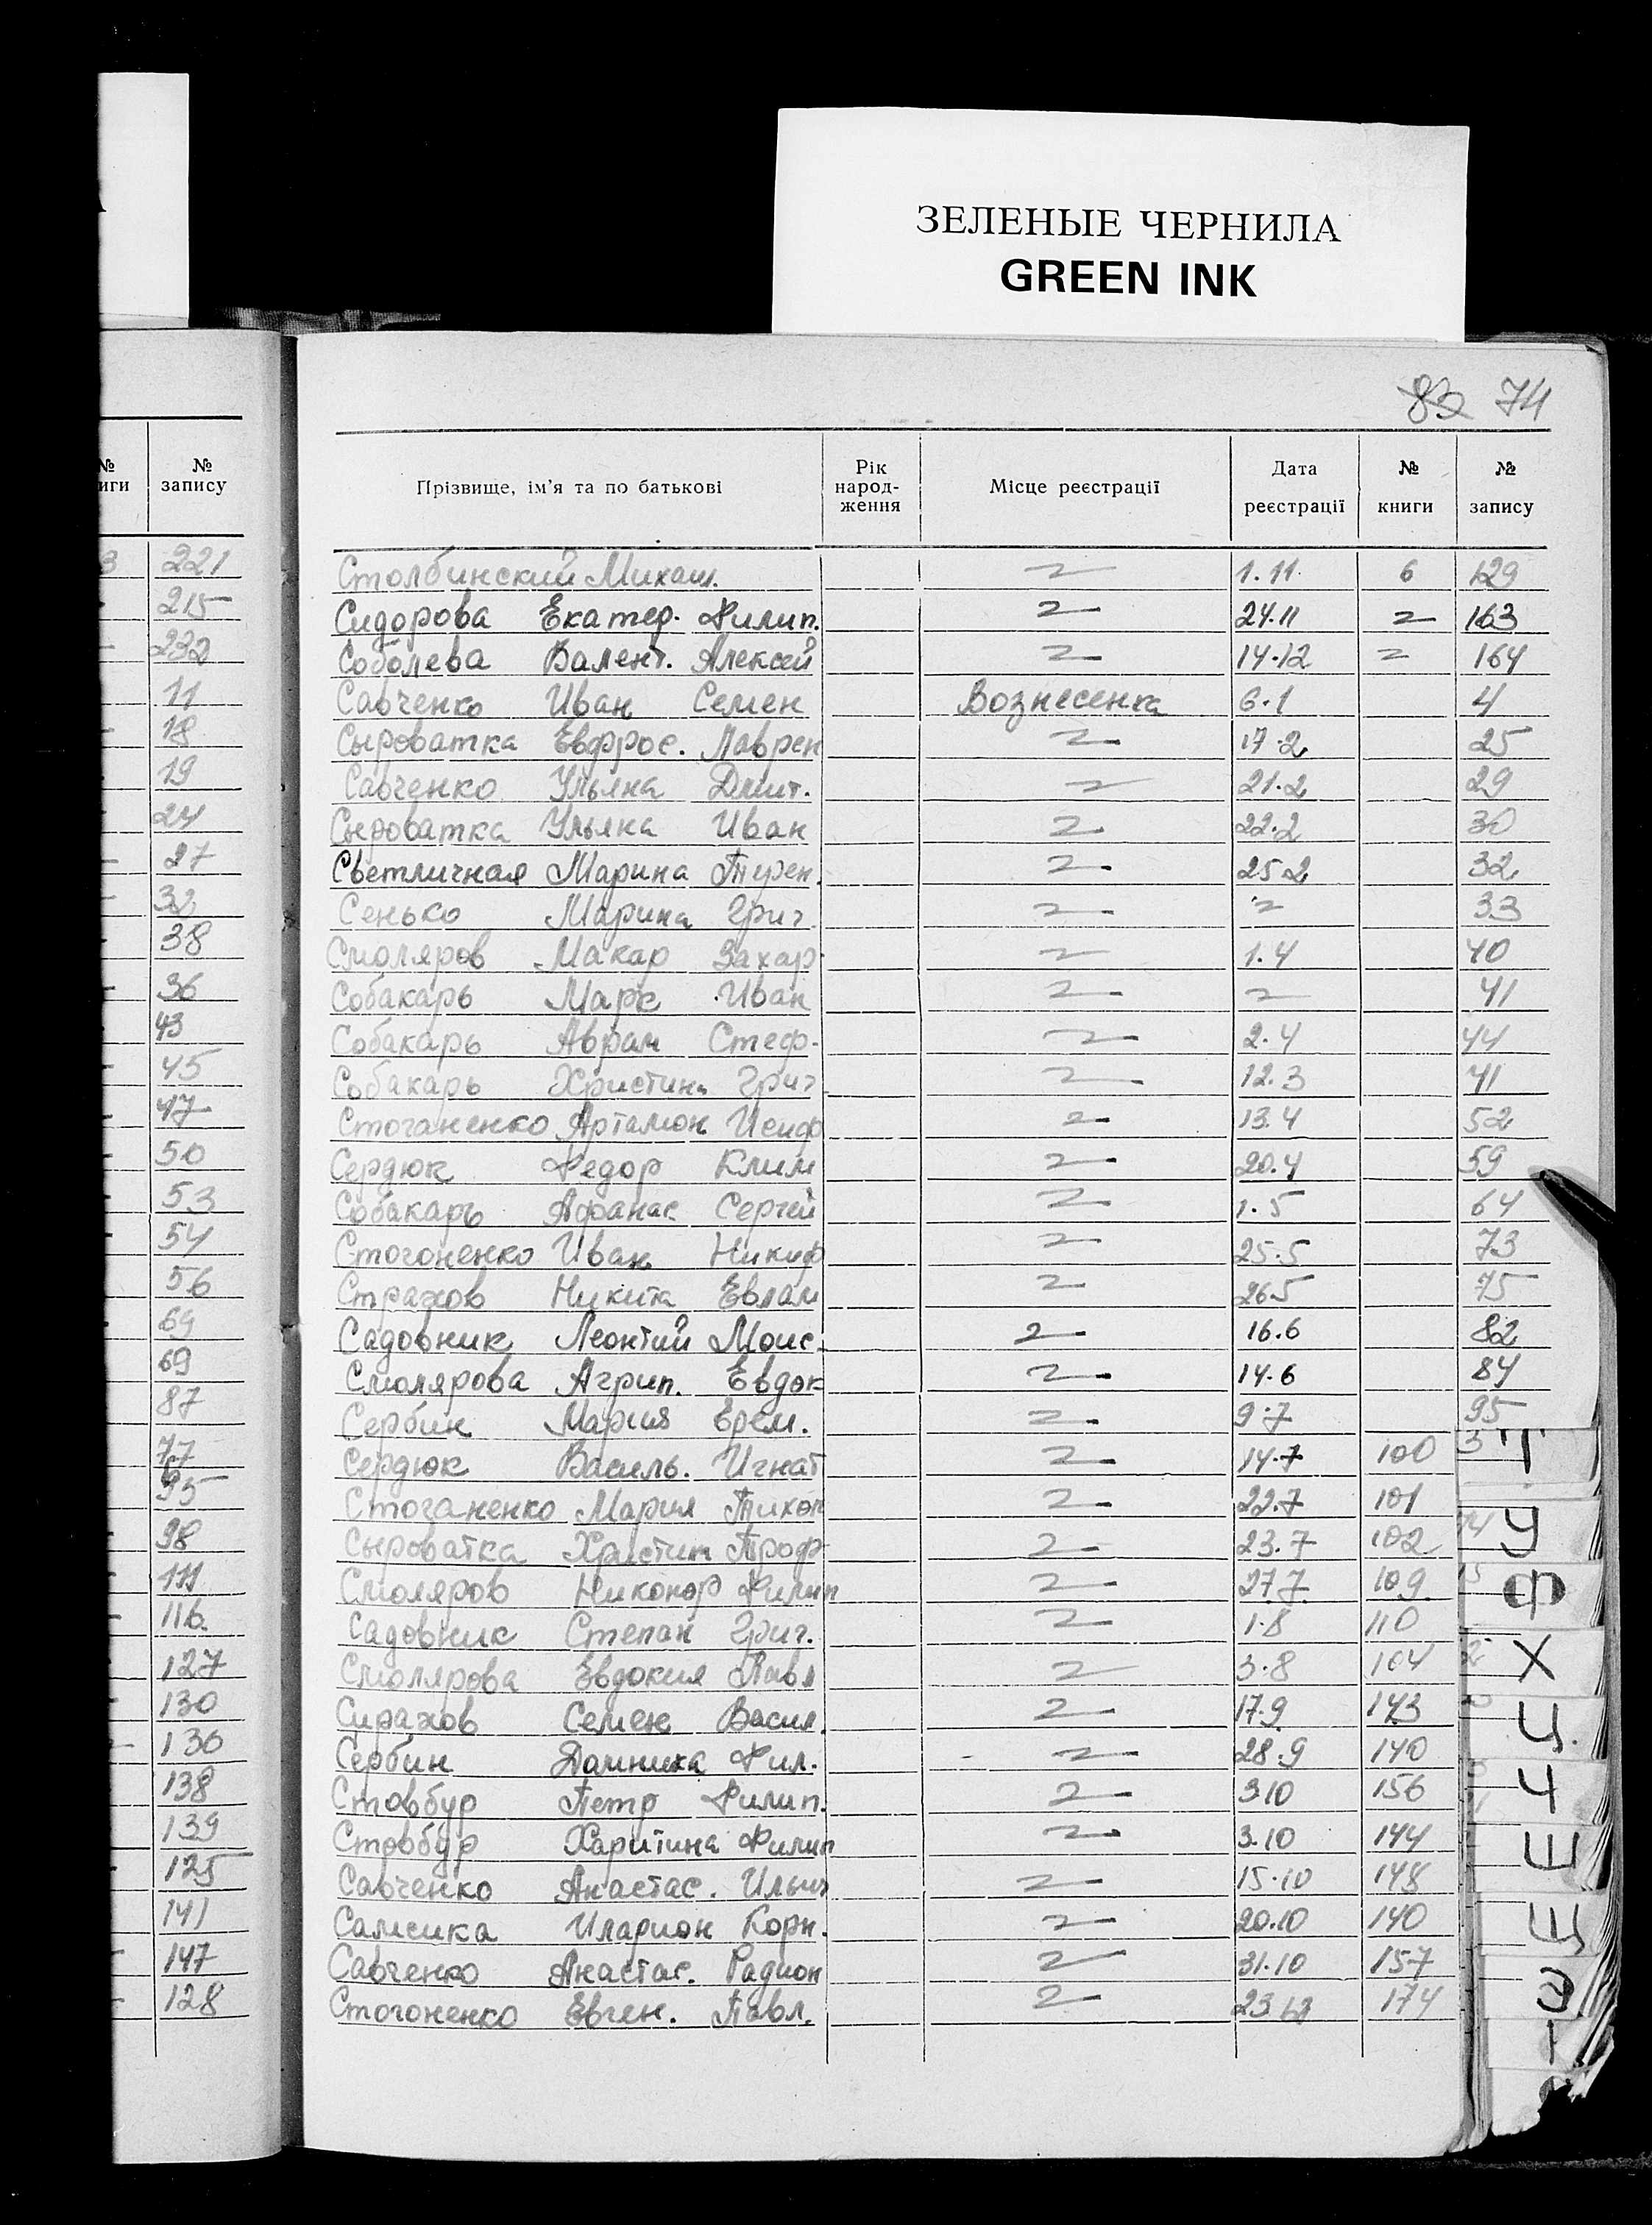 ЗЕЛЕНЫЕ ЧЕРНИЛА
GREEN INK
83 74
№ иги № запису
Прізвище, ім'я та по батькові Рік народ- ження Місце реєстрації Дата реєстрації № книги № запису
3 221
215
232
11
18
19
24
27
32
38
36
43
45
47
50
53
54
56
69
69
87
77
95
98
111
116.
127
130
136
138
139
125
141
147
128
Столбинский Михаил. 1.11. 6 129
Сидорова Екатер. Филип. 24.11 163
Соболева Валент. Алексей 14.12 164
Савченко Иван Семен Вознесенка 6.1 4
Сыроватка Евфрос. Лаврен 17.2 25
Савченко Ульяна Дмит. 21.2 29
Сыроватка Ульяна Иван 22.2 30
Светличная Марина Терен. 25 2 32
Сенько Марина Григ. 33
Смоляров Макар Захар 1.4 40
Собакарь Марк Иван 41
Собакарь Аврам Стеф. 2.4 44
Собакарь Христина Григ 12.3 41
Стоганенко Артамон Иосиф 13.4 52
Сердюк Федор Клим 20.4 59
Собакарь Афанас Сергей 1.5 64
Стогоненко Иван Никиф 25.5 73
Страхов Никита Евлам 26 5 75
Садовник Леонтий Моис. 16.6 82
Смолярова Агрип. Евдок 14.6 84
Сербин Мария Ерем. 9.7 95
Сердюк Василь. Игнат 14.7 100
Стоганенко Мария Тихон 22.7 101
Сыроватка Христин Троф 23.7 102
Смоляров Никонор Филип 27 7 109
Садовник Степан Григ. 1.8 110
Смолярова Евдокия Павл 3.8 104
Семен Васил. 17.9 143
Сербин Домника Фил. 28.9 140
Стовбур Петр Филип. 3 10 156
Стовбур Харитина Филип 3.10 144
Савченко Анастас. Ильич 15.10 148
Самсика Иларион Корн. 20.10 140
Савченко Анастас. Радион 31.10 157
Стогоненко Евген. Павл. 23 12 174
Т
У
Ф
Х
Ц
Ч
Ш
Щ
Э